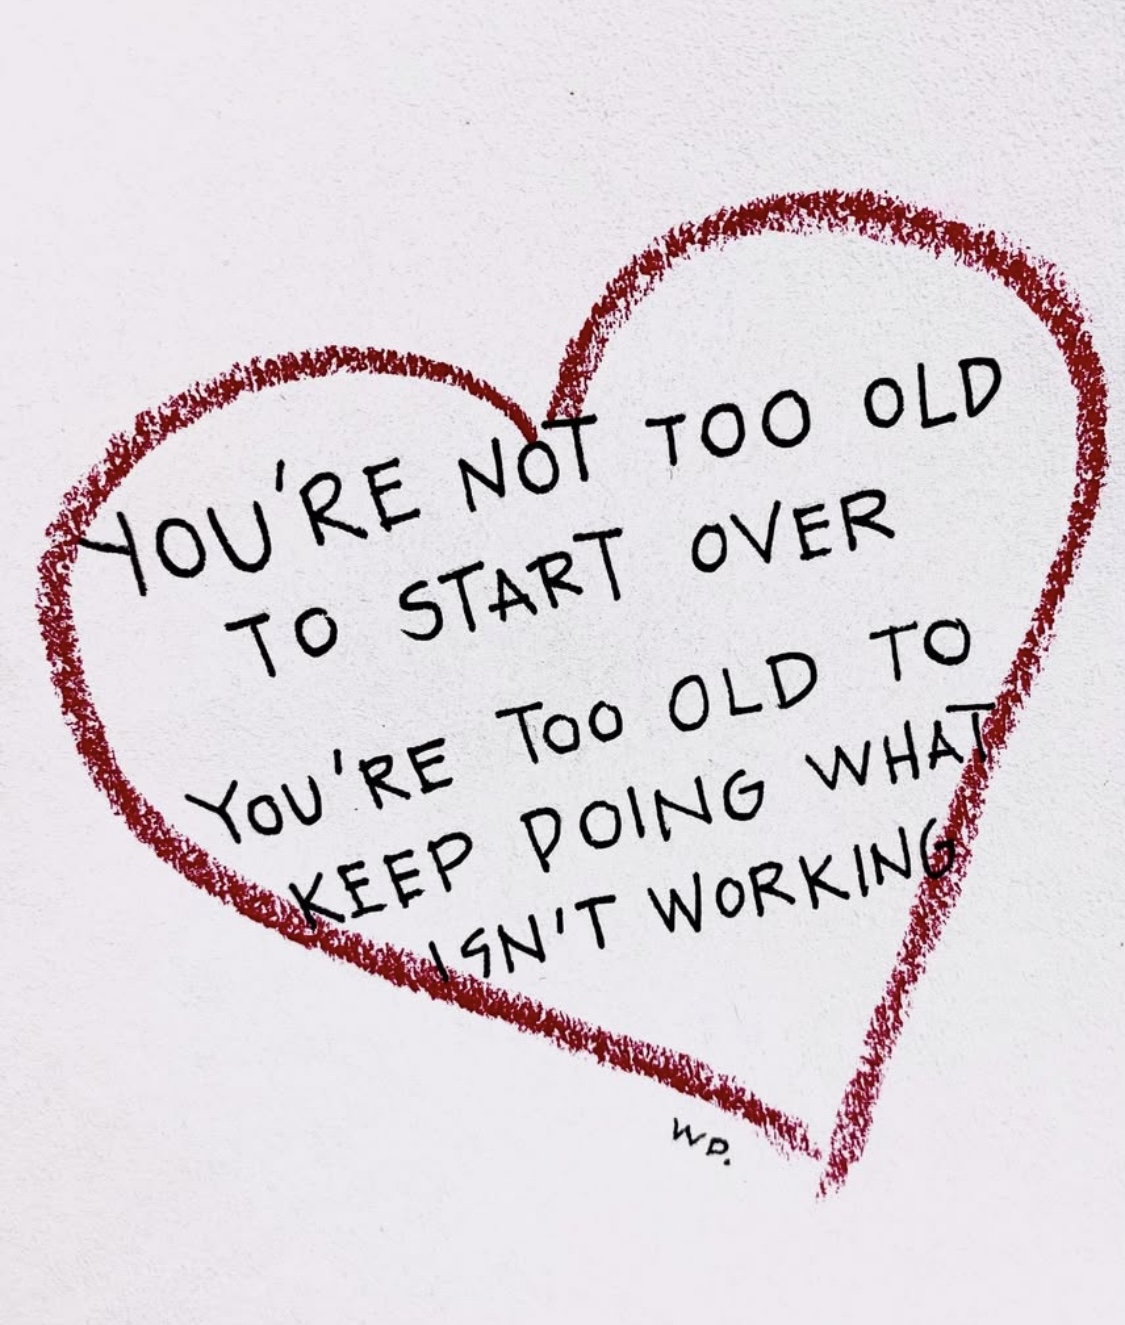 YOU'RE NOT TOO OLD
TO START OVER
YOU'RE TOO OLD TO
KEEP DOING WHAT
ISN'T WORKING
WD.